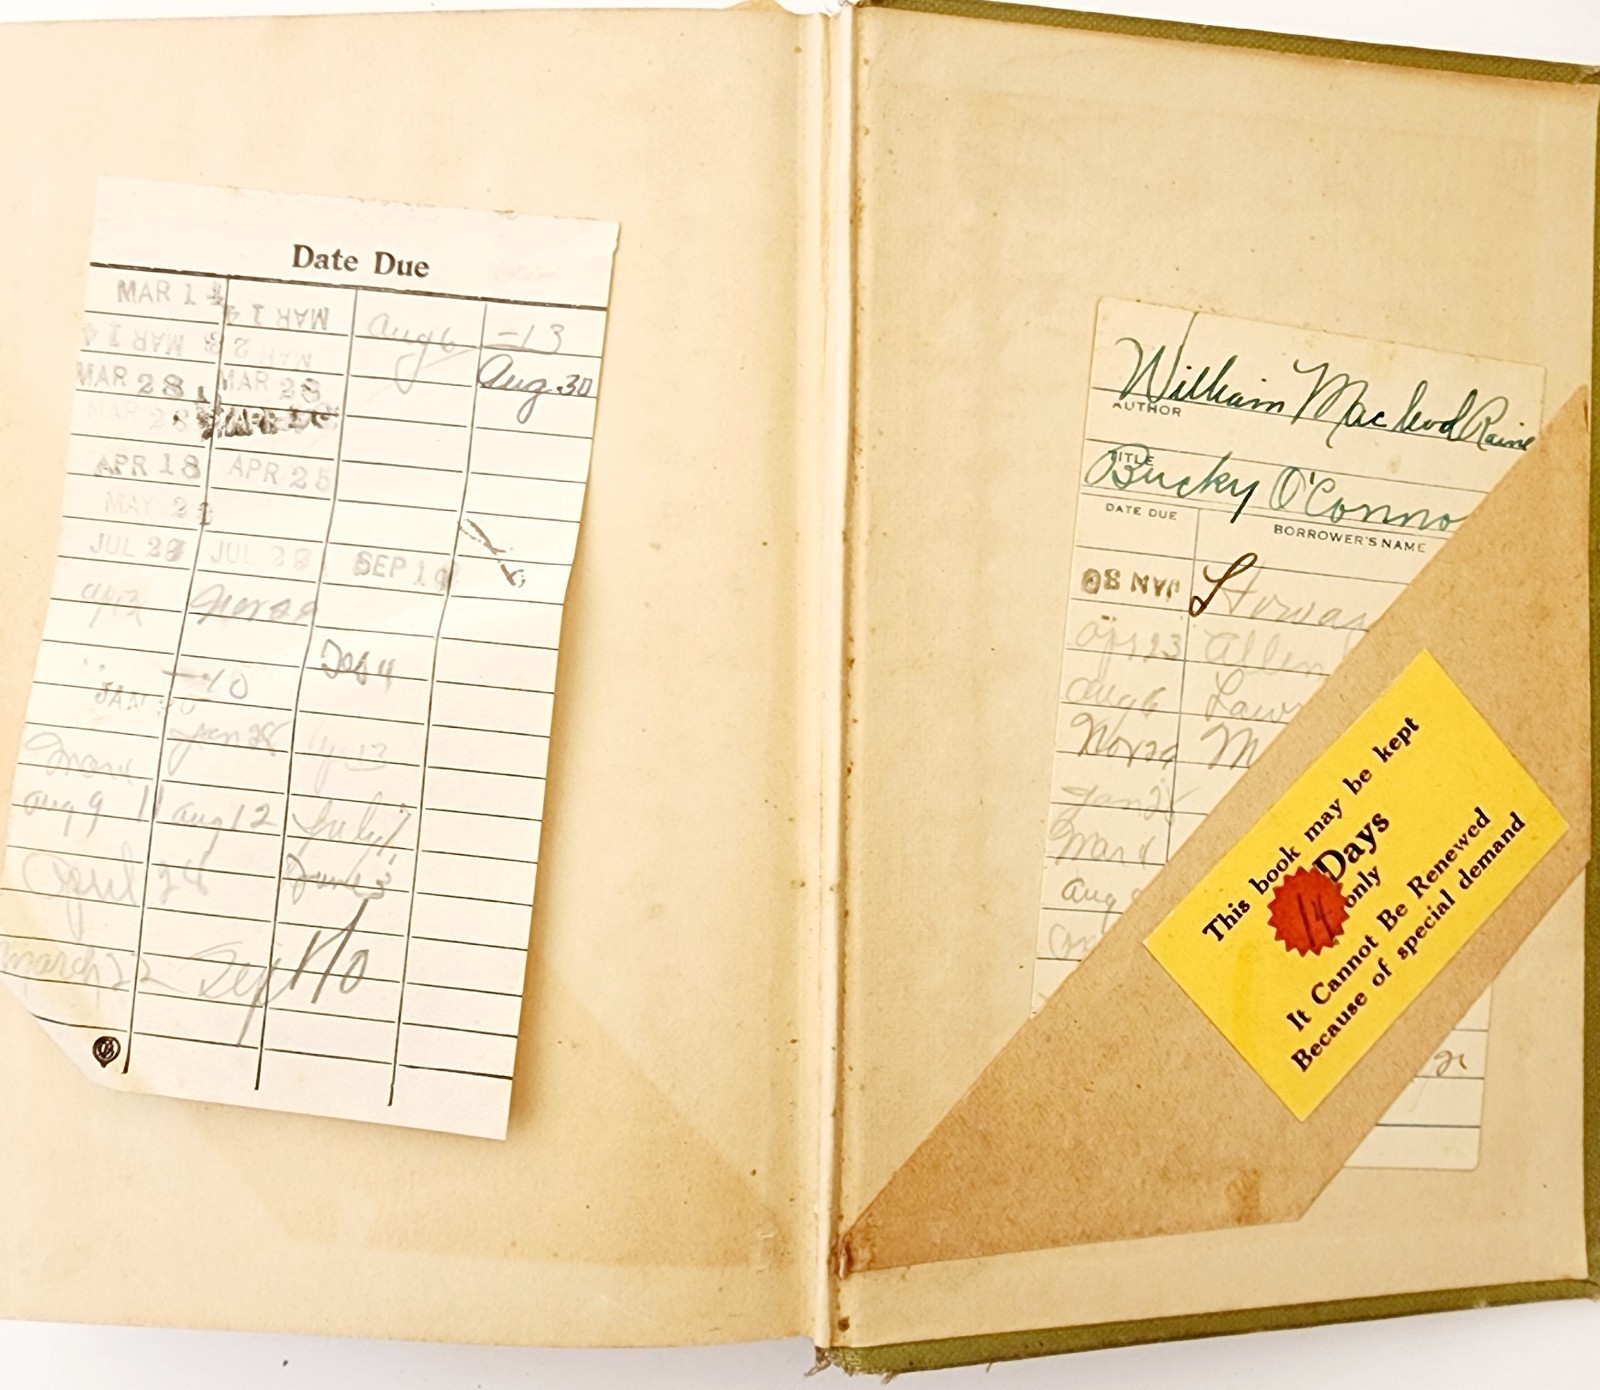 Date Due
MAR 14 MAR 14 Aug 6 -13
MAR 14 MAR 23
MAR 28 MAR 28 Aug. 30
MAR 28
APR 18 APR 25
MAY 23
JUL 28 JUL 28 SEP 19
Nov 29
Dec 4
-10
JAN 30
Jan 28
Mar 4
Aug 9 11 Aug 12 July 7
April 28 June 3
March 22 Sep 10
William MacLeod Raine
AUTHOR
TITLE
Bucky O'Conno
DATE DUE BORROWER'S NAME
JAN 30
Apr 23 Allen
Aug 6
Nov 29 M
Jan 28
Mar 4
Aug
This book may be kept
14 Days
only
It Cannot Be Renewed
Because of special demand